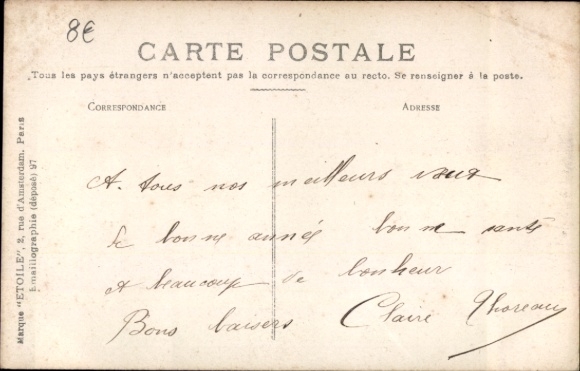 8€
CARTE POSTALE
Tous les pays étrangers n'acceptent pas la correspondance au recto. Se renseigner à la poste.
CORRESPONDANCE
ADRESSE
A tous nos meilleurs vœux
de bonne année bonne santé
et beaucoup de bonheur
Bons baisers Claire Thoreau
Marque "ETOILE", 2, rue d'Amsterdam. Paris
Emaillographie (déposé) 97